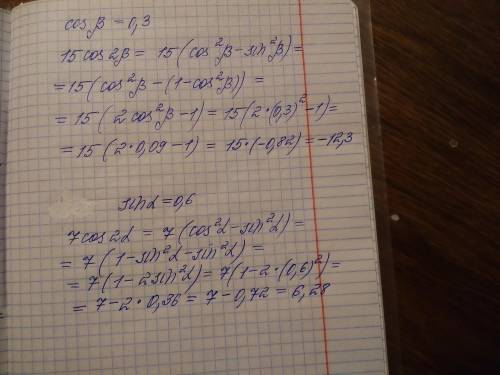 cos β = 0,3
15 cos 2β = 15 (cos²β - sin²β) =
= 15 (cos²β - (1 - cos²β)) =
= 15 (2 cos²β - 1) = 15 (2 · (0,3)² - 1) =
= 15 (2 · 0,09 - 1) = 15 · (-0,82) = -12,3
sin α = 0,6
7 cos 2α = 7 (cos²α - sin²α) =
= 7 (1 - sin²α - sin²α) =
= 7 (1 - 2 sin²α) = 7 (1 - 2 · (0,6)²) =
= 7 - 2 · 0,36 = 7 - 0,72 = 6,28